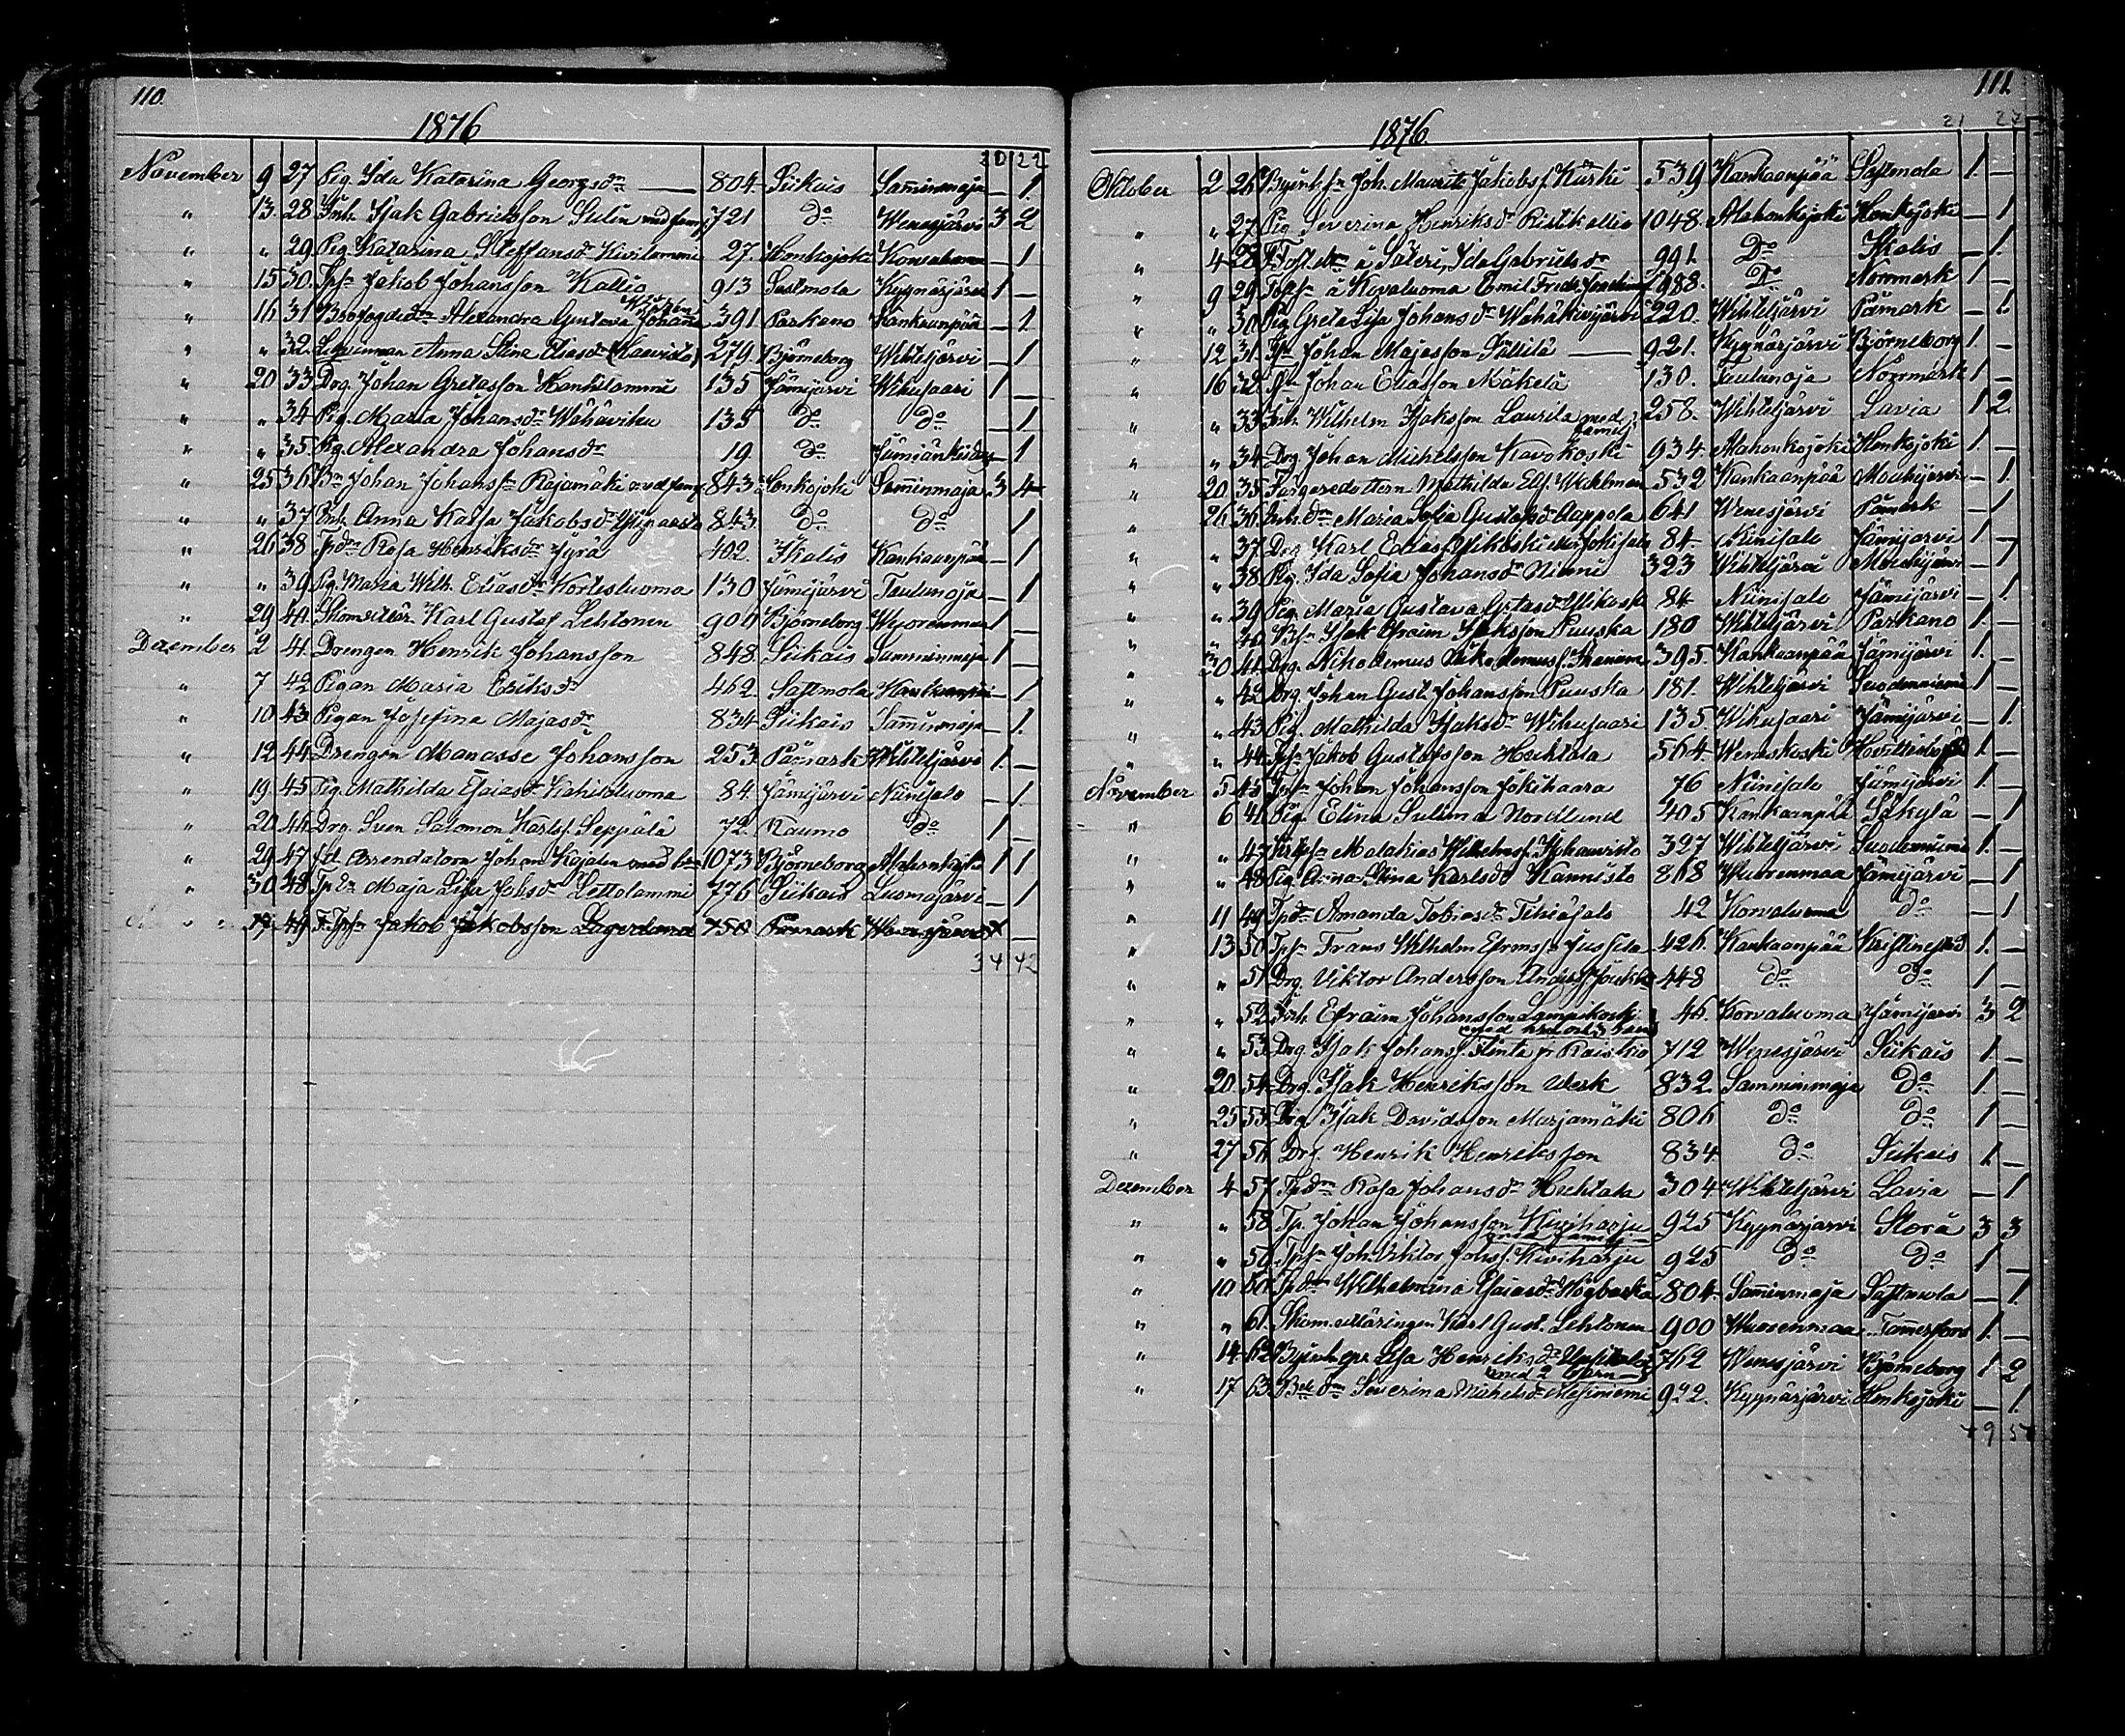 110.
1876
20 21
November 9 27 Pig. Ida Katarina Georgsdr — 804. Siikais Samminmaja — 1.
" 13. 28 Inh. Isak Gabrielsson Sulin med famj. 721 do Wenesjärvi 3 2
" " 29 Pig. Katarina Steffansdr Kivilammi 27. Honkojoki — 1
" 15 30. Tpsn Jakob Johansson Kallio 913 Sastmola Kyynärjärvi 1 —
" 16 31 Alexandra Gustava Johansdr 391 Parkano Kankaanpää — 1
" " 32. Anna Stina Eliasdr (Laurila) 279. Björneborg Wihteljärvi — 1
" 20 33 Drg. Johan Gretasson Hanhilammi 135 Jämijärvi Wihusaari 1 —
" " 34 Pig. Maria Johansdr Wähäviha 135 do do — 1
" " 35. Pig. Alexandra Johansdr 19 do — 1
" 25 36 Bn Johan Johanssn Rajamäki med famj 843 Honkojoki Samminmaja 3 4
" " 37 Inh. Anna Kaisa Jakobsdr 843. do do 1
" 26 38 Tpdr Rosa Henriksdr Jyrä 402. Ikalis Kankaanpää — 1
" " 39 Pig. Maria Wilh. Eliasdr Kortesluoma 130 Jämijärvi Taulunoja — 1
" 29 40. Karl Gustaf Lehtonen 900 Björneborg Wuorenmaa 1 —
Dezember 2 41. Drengen Henrik Johansson 848. Siikais Samminmaja 1 —
" 7 42 Pigan Maria Eriksdr 462. Sastmola Kankaanpää — 1
" 10 43. Pigan Josefina Majasdr 834 Siikais Samminmaja — 1.
" 12 44 Drengen Manasse Johansson 253. Påmark Wihteljärvi 1. —
" 19 45 Pig. Mathilda Esaiasdr Kahiluoma 84. Jämijärvi Niinisalo — 1.
" 20 46 Drg. Sven Salomon Karlss. Seppälä 72. Raumo do 1 —
" 29 47 fd. Arrendatorn Johan Kajalen med 1073 Björneborg Alahonkajoki 1 1
" 30 48. Tp. Maja Lisa Johsdr Lettolammi 776 Siikais Luomajärvi — 1
49 F. Tpsn Jakob Jakobsson Lagerlund 758 Påmark Wenesjärvi —
34 42
111.
1876.
21 22
Oktober 2 26 Joh. Maurits Jakobss. Kurki 539 Kankaanpää Sastmola 1. —
" " 27 Pig Severina Henriksdr Ristikallio 1048. Alahonkojoki Honkojoki — 1
" 4 28 å Säteri, Ida Gabrielsdr 991. Do Ikalis — 1.
" 9 29 Tpsn å Kovaluoma Emil Fredr. 988. Do Norrmark 1 —
" " 30 Pig Greta Lisa Johansdr Wähäkivijärvi 220. Wihteljärvi Påmark — 1.
" 12 31. Tpsn Johan Majasson Tällilä — 921. Kyynärjärvi Björneborg 1. —
" 16 32. Johan Eliasson Mäkelä 130. Taulunoja Norrmark 1 —
" " 33 Inh. Wilhelm Isaksson Laurila med familj 258. Wihteljärvi Lavia 1 2.
" " 34. Drg Johan Michelsson Kavokoski 934. Alahonkojoki Honkojoki 1. —
" 20 35 Färgaredottern Mathilda Elis. Wahlman 532 Kankaanpää Mouhijärvi — 1.
" 26 36 Inh. Maria Sofia Gustafsdr Aappola 641 Wenesjärvi Påmark — 1.
" " 37 Drg Karl Eliass. 84 Niinisalo Jämijärvi 1 —
" " 38 Pig. Ida Sofia Johansdr Niemi 323 Wihteljärvi Mouhijärvi — 1
" " 39 Pig. Maria Gustava 84 Niinisalo Jämijärvi — 1.
" " 40 Isak Efraim Isaksson Puuska 180 Wihteljärvi Parkano 1 —
" 30 41. Drg. Nikodemus Nikodemuss. 395. Kankaanpää Jämijärvi 1. —
" " 42 Drg. Johan Gust. Johansson Puuska 181. Wihteljärvi Suodenniemi 1 —
" " 43 Pig. Mathilda Isaksdr Wihusaari 135 Wihusaari Jämijärvi — 1.
" " 44. Tpsn Jakob Gustafsson Huhtala 564. Weneskoski 1. —
November 5 45 Tpsn Johan Johansson Jokihaara 76 Niinisalo Jämijärvi 1. —
" 6 46 Pig. Elina Sulina Nordlund 405 Kankaanpää Säkylä — 1
" " 47 Malakias Wilhelms. 327 Wihteljärvi Suodenniemi 1. —
" " 48. Pig. Anna Stina Karlsdr Kannisto 868 Wuorenmaa Jämijärvi — 1
" 11 49 Tpdr Amanda Tobiasdr 42 Korvaluoma do — 1
" 13 50. Tpsn Frans Wilhelm Jussila 426. Kankaanpää Kristinestad 1. —
" " 51. Drg. Viktor Andersson 448 do do 1 —
" " 52 Inh. Efraim Johansson Lampikoski med hustru o. 3 barn 46. Korvaluoma Jämijärvi 3 2
" " 53. Drg. Isak Johanss. Hinta p. Raiskio 712 Wenesjärvi Siikais 1. —
" 20. 54. Drg. Isak Henriksson Wesk 832 Samminmaja do 1. —
" 25 55. Drg. Isak Davidsson Marjamäki 806 do do 1 —
" 27 56 Drg. Henrik Henriksson 834 do Siikais 1 —
Dezember 4 57. Tpdr Rosa Johansdr Huhtala 304 Wihteljärvi Lavia — 1
" " 58 Tp. Johan Johansson Kiviharju med familj 925 Kyynärjärvi Storå 3 3
" " 59. Tpsn Joh. Viktor Johss. Kiviharju 925 do do 1 —
" 10 60. Wilhelmina Esaiasdr Högbacka 804. Samminmaja Sastmola — 1.
" " 61. Karl Gust. Lehtonen 900 Wuorenmaa Tammerfors 1. —
" 14 62 Lisa Henriksdr med 2 barn 762 Wenesjärvi Björneborg 1 2
" 17 63. Severina Michelsdr 922. Kyynärjärvi Honkojoki — 1.